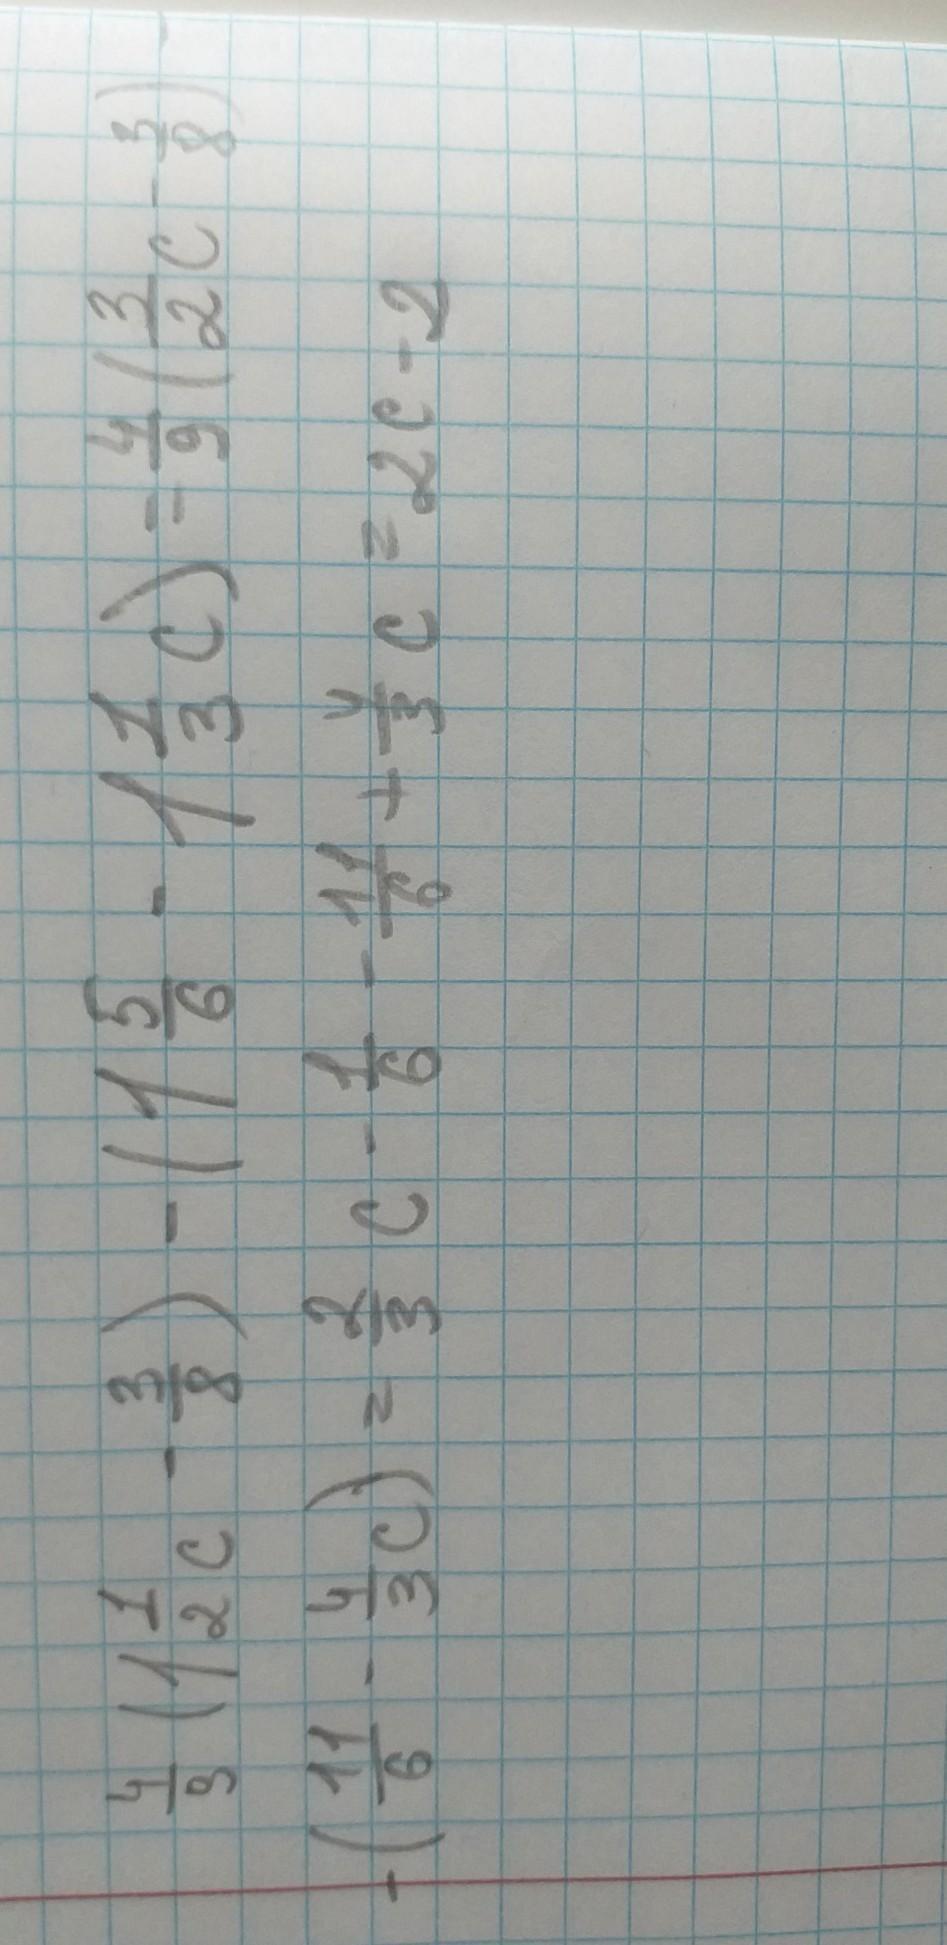 4/9 (1 1/2 c - 3/8) - (1 5/6 - 1 1/3 c) = 4/9 (3/2 c - 3/8) -
- (11/6 - 4/3 c) = 2/3 c - 1/6 - 11/6 + 4/3 c = 2c - 2